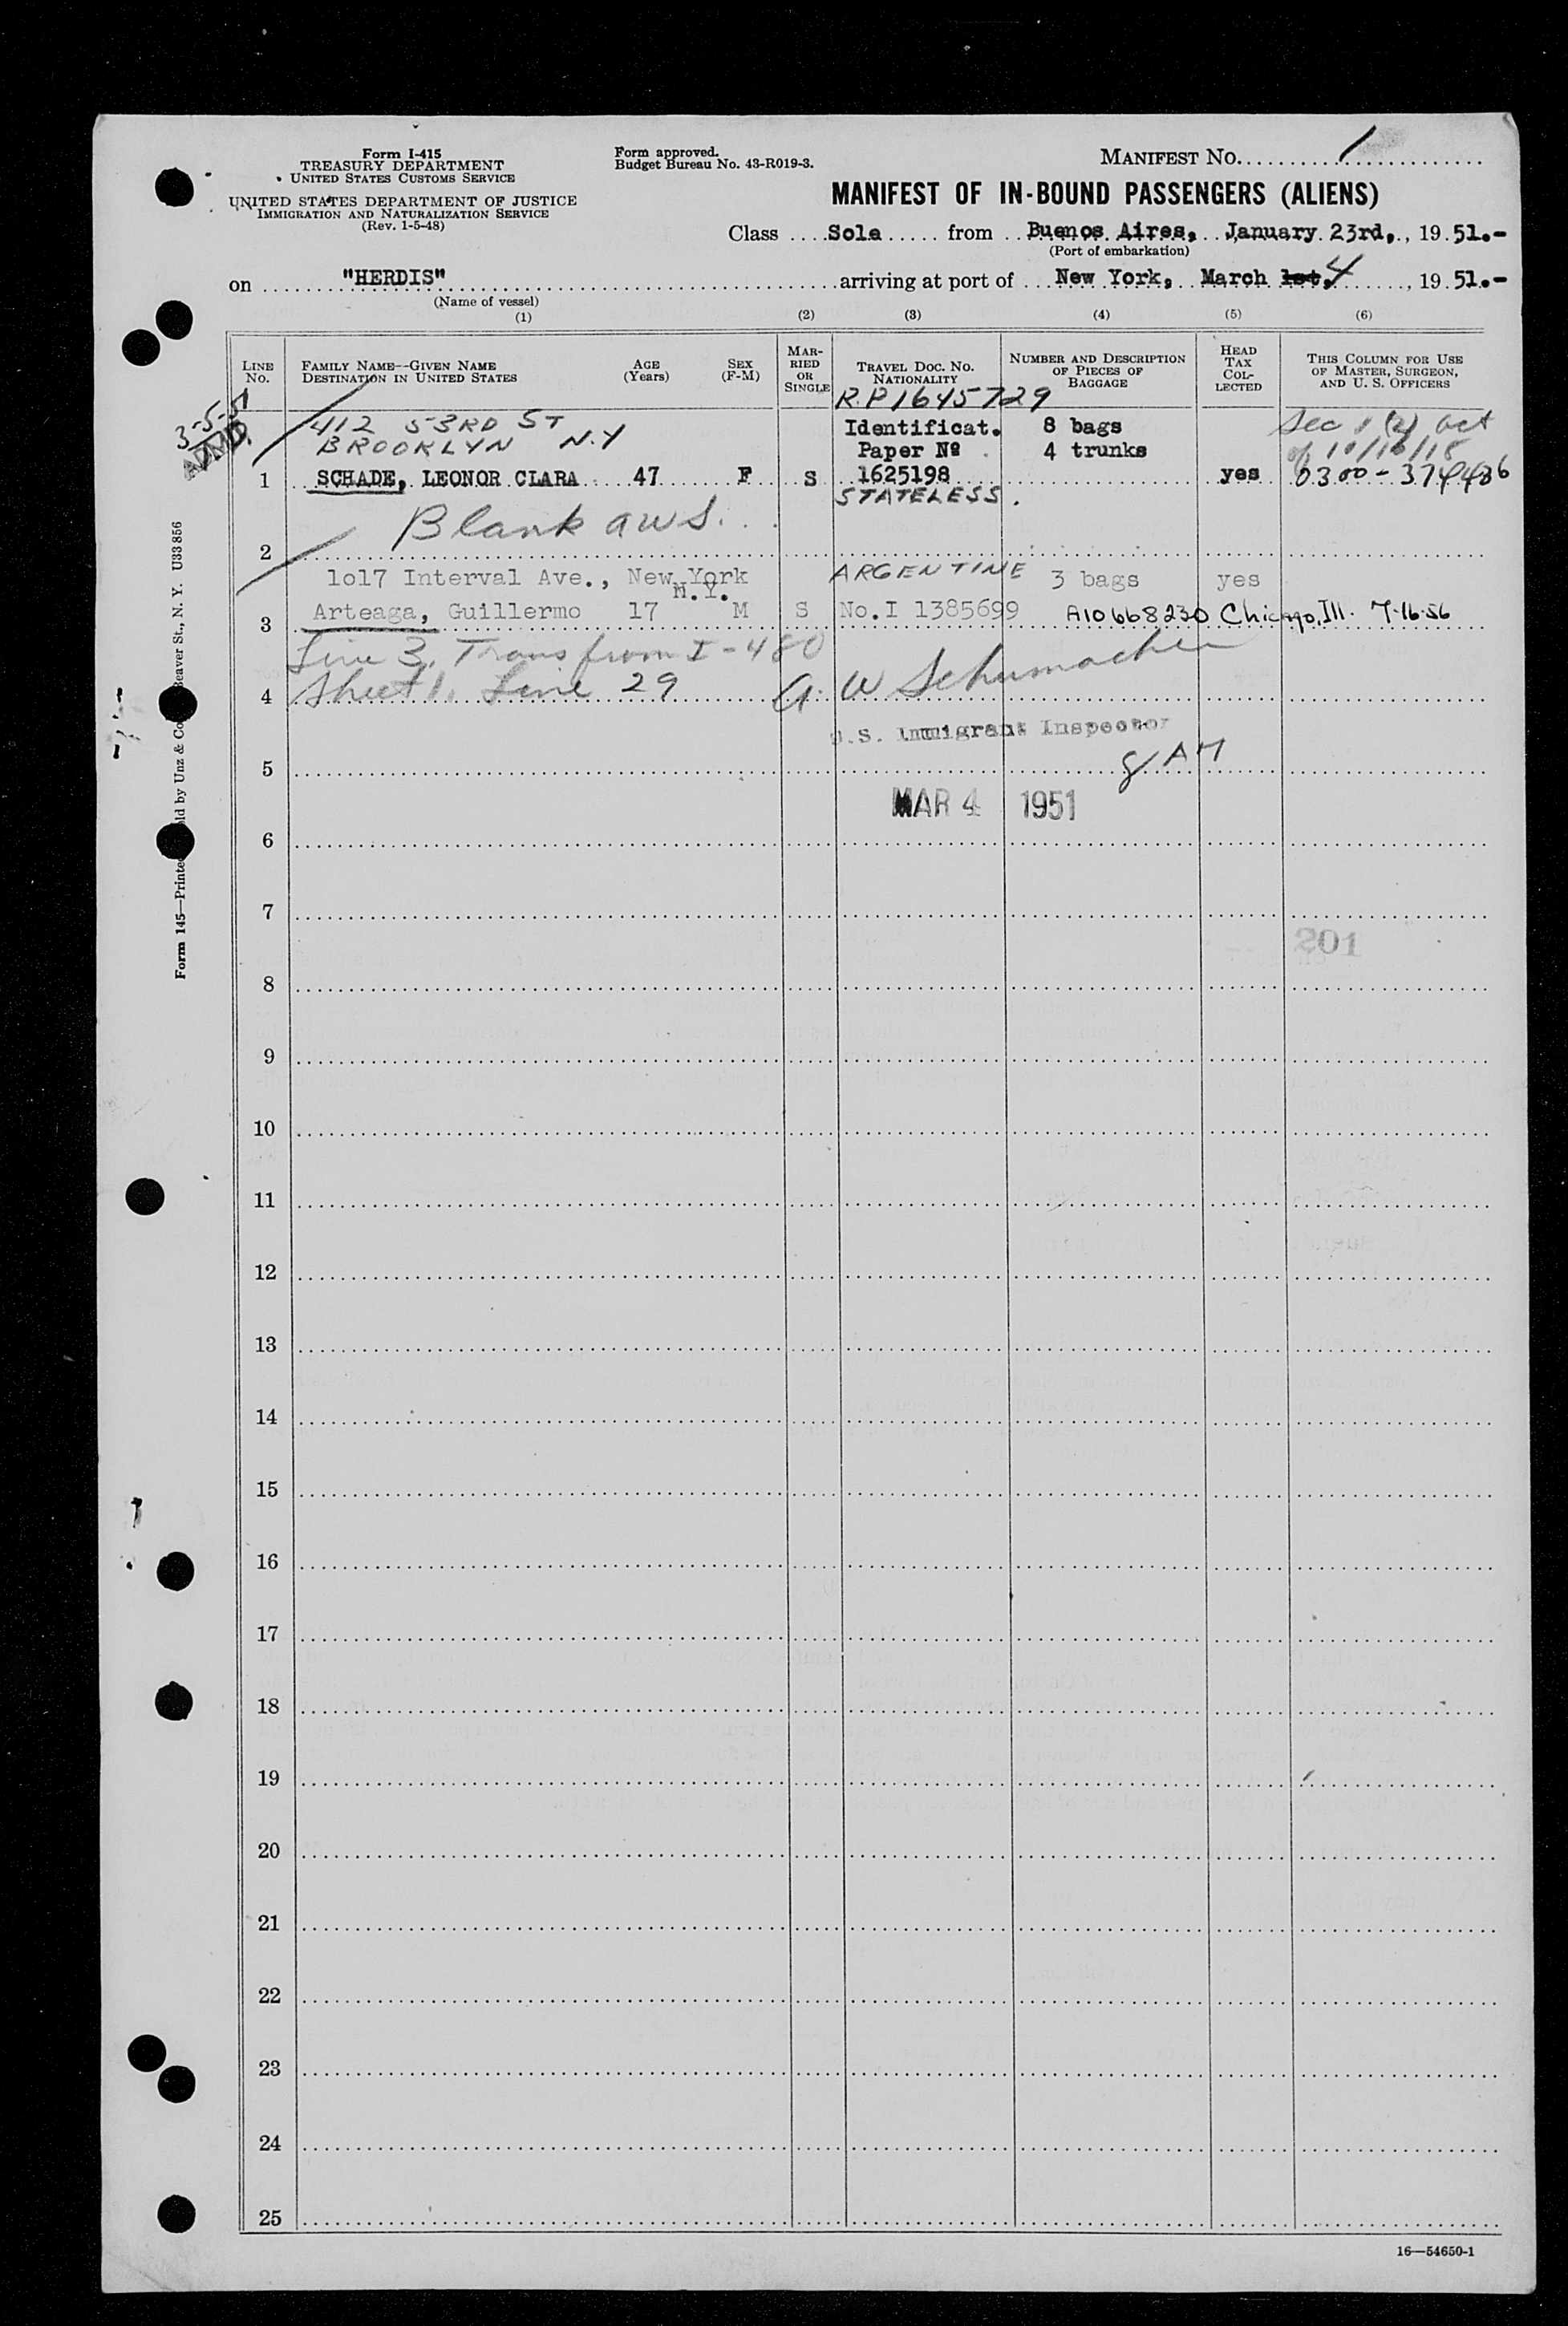 Form I-415
TREASURY DEPARTMENT
UNITED STATES CUSTOMS SERVICE
UNITED STATES DEPARTMENT OF JUSTICE
IMMIGRATION AND NATURALIZATION SERVICE
(Rev. 1-5-48)
Form approved.
Budget Bureau No. 43-R019-3.
MANIFEST NO. 1
MANIFEST OF IN-BOUND PASSENGERS (ALIENS)
Class Sole from Buenos Aires, January 23rd, 19 51.-
(Port of embarkation)
on "HERDIS" arriving at port of New York, March 1st, 4, 19 51.-
(Name of vessel)
(1) (2) (3) (4) (5) (6)
LINE NO.
FAMILY NAME--GIVEN NAME
DESTINATION IN UNITED STATES
AGE (Years)
SEX (F-M)
MARRIED OR SINGLE
TRAVEL DOC. NO.
NATIONALITY
NUMBER AND DESCRIPTION OF PIECES OF BAGGAGE
HEAD TAX COLLECTED
THIS COLUMN FOR USE OF MASTER, SURGEON, AND U. S. OFFICERS
3-5-51
ADMD.
R.P 1645729
412 53RD ST Identificat. 8 bags Sec 1 (2) act
BROOKLYN N.Y Paper Nº 4 trunks of 10/16/18
1 SCHADE, LEONOR CLARA 47 F S 1625198 yes 0300-374486
STATELESS.
Blank aws.
2
1o17 Interval Ave., New York ARGENTINE 3 bags yes
N.Y.
3 Arteaga, Guillermo 17 M S No.I 1385699 A10668230 Chicago, Ill. 7-16-56
Line 3. Trans from I-480
4 Sheet 1. Line 29 A W Schumacher
U.S. Immigrant Inspector
5
MAR 4 1951
6
7
201
8
9
10
11
12
13
14
15
16
17
18
19
20
21
22
23
24
25
16—54650-1
Form 145—Printed
ld by Unz & Co
Beaver St., N. Y. U33856